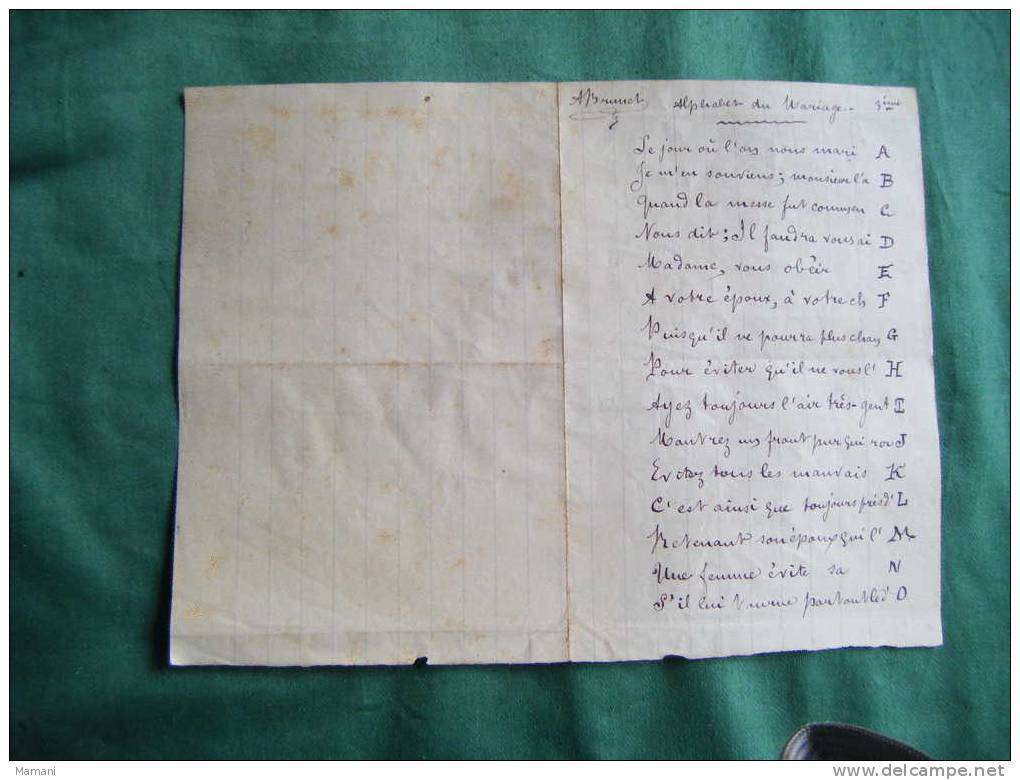 ABrunet Alphabet du Mariage.- 3ième
Le jour où l'on nous mari A
Je m'en souviens; monsieur l'a B
Quand la messe fut commen C
Nous dit; Il faudra vous ai D
Madame, vous obéir E
A votre époux, à votre ch F
Puisqu'il ne pourra plus chan G
Pour éviter qu'il ne vous l' H
Ayez toujours l'air très-gent I
Montrez un front pur qui rou J
Evitez tous les mauvais K
C'est ainsi que toujours près d' L
Retenant son époux qui l' M
Une femme évite sa N
S'il lui tourne partout le d' O
Mamani
http://www.delcampe.net